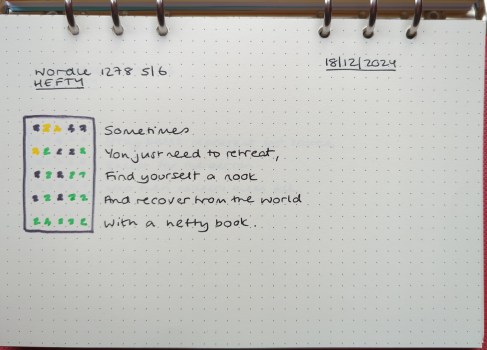 Wordle 1278 5/6
18/12/2024
HEFTY
Sometimes
You just need to retreat,
Find yourself a nook
And recover from the world
With a hefty book.